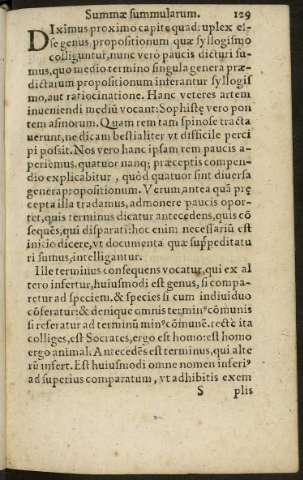 Summæ summularum. 129
DIximus proximo capite quadruplex es-
se genus propositionum quæ syllogismo
colliguntur, nunc verò paucis dicturi su-
mus, quo medio termino singula genera præ-
dictarum propositionum inferantur syllogis
mo, aut ratiocinatione. Hanc veteres artem
inueniendi mediū vocant: Sophistę vero pon
tem asinorum. Quam rem tam spinose tracta
uerunt, ne dicam bestialiter vt difficile perci
pi possit. Nos vero hanc ipsam rem paucis a-
periemus, quatuor nanq; præceptis compen-
dio explicabitur, quòd quatuor sint diuersa
genera propositionum. Verum antea quā prę
cepta illa tradamus, admonere paucis opor-
tet, quis terminus dicatur antecedens, quis cō
sequēs, qui disparati: hoc enim necessariū est
initio dicere, vt documenta quæ suppeditatu
ri sumus, intelligantur.
Ille terminus consequens vocatur, qui ex al
tero infertur, huiusmodi est genus, si compa-
retur ad speciem, & species si cum indiuiduo
cōferatur: & denique omnis termin⁹ cōmunis
si referatur ad terminū min⁹ cōmunē. rectè ita
colliges, est Socrates, ergo est homo: est homo
ergo animal. Antecedēs est terminus, qui alte
rū infert. Est huiusmodi omne nomen inferi⁹
ad superius comparatum, vt adhibitis exem
S plis